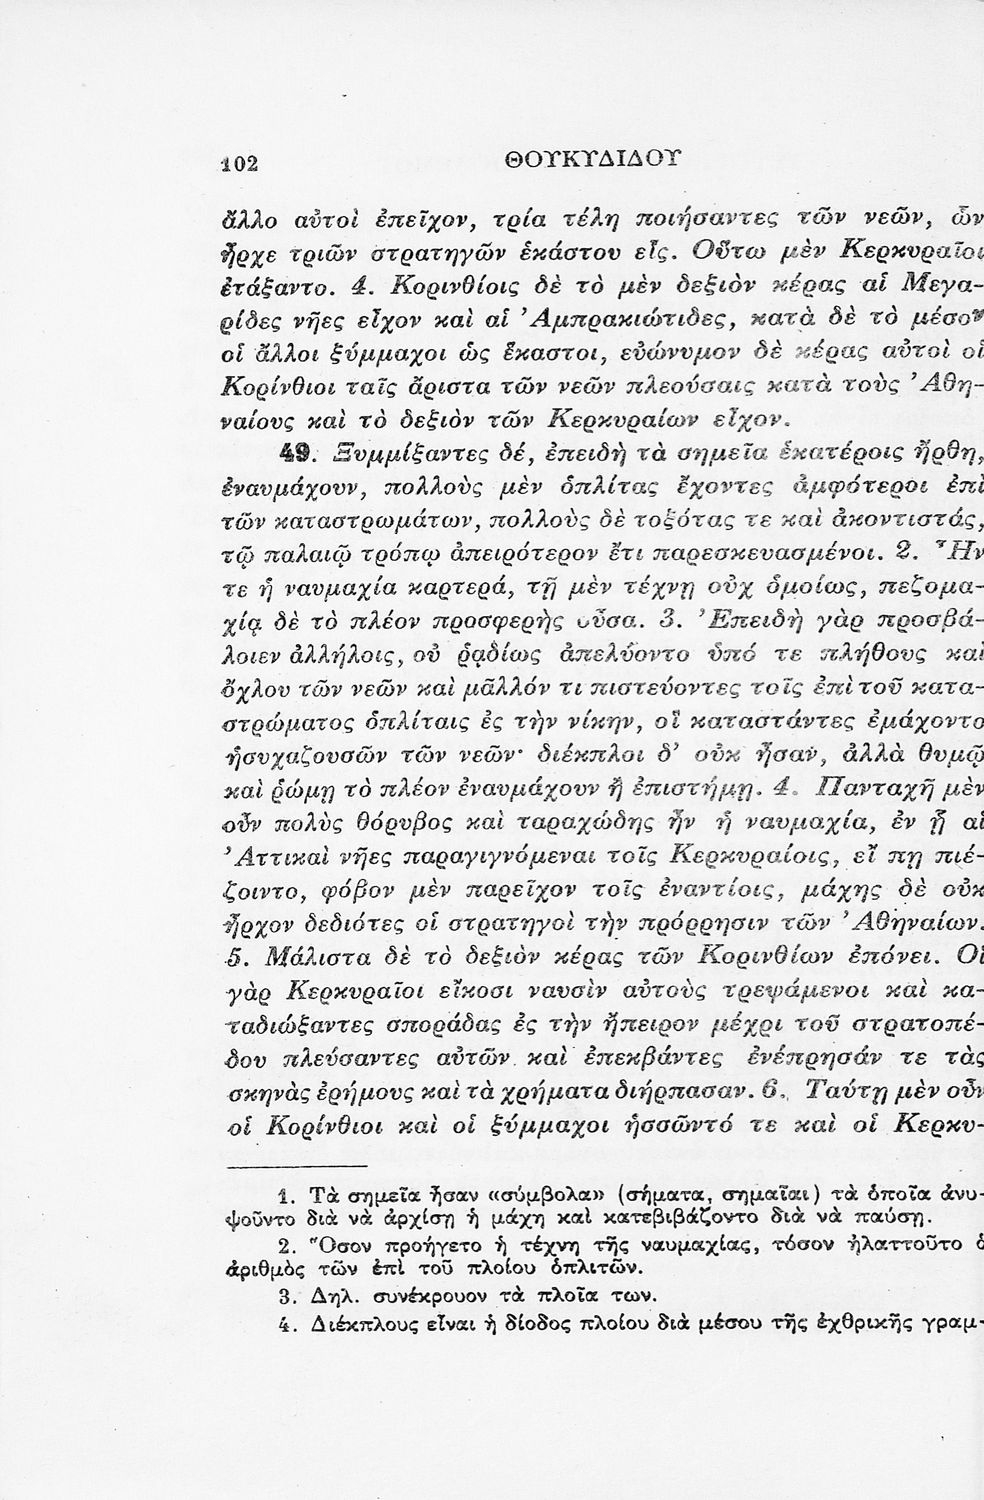 102 ΘΟΥΚΥΔΙΔΟΥ
ἄλλο αὐτοὶ ἐπεῖχον, τρία τέλη ποιήσαντες τῶν νεῶν, ὧν
ἦρχε τριῶν στρατηγῶν ἑκάστου εἷς. Οὕτω μὲν Κερκυραῖοι
ἐτάξαντο. 4. Κορινθίοις δὲ τὸ μὲν δεξιὸν κέρας αἱ Μεγα-
ρίδες νῆες εἶχον καὶ αἱ Ἀμπρακιώτιδες, κατὰ δὲ τὸ μέσον
οἱ ἄλλοι ξύμμαχοι ὡς ἕκαστοι, εὐώνυμον δὲ κέρας αὐτοὶ οἱ
Κορίνθιοι ταῖς ἄριστα τῶν νεῶν πλεούσαις κατὰ τοὺς Ἀθη-
ναίους καὶ τὸ δεξιὸν τῶν Κερκυραίων εἶχον.
49. Ξυμμίξαντες δέ, ἐπειδὴ τὰ σημεῖα ἑκατέροις ἤρθη,
ἐναυμάχουν, πολλοὺς μὲν ὁπλίτας ἔχοντες ἀμφότεροι ἐπὶ
τῶν καταστρωμάτων, πολλοὺς δὲ τοξότας τε καὶ ἀκοντιστάς,
τῷ παλαιῷ τρόπῳ ἀπειρότερον ἔτι παρεσκευασμένοι. 2. Ἦν
τε ἡ ναυμαχία καρτερά, τῇ μὲν τέχνῃ οὐχ ὁμοίως, πεζομα-
χίᾳ δὲ τὸ πλέον προσφερὴς οὖσα. 3. Ἐπειδὴ γὰρ προσβά-
λοιεν ἀλλήλοις, οὐ ῥᾳδίως ἀπελύοντο ὑπό τε πλήθους καὶ
ὄχλου τῶν νεῶν καὶ μᾶλλόν τι πιστεύοντες τοῖς ἐπὶ τοῦ κατα-
στρώματος ὁπλίταις ἐς τὴν νίκην, οἳ καταστάντες ἐμάχοντο
ἡσυχαζουσῶν τῶν νεῶν· διέκπλοι δ' οὐκ ἦσαν, ἀλλὰ θυμῷ
καὶ ῥώμῃ τὸ πλέον ἐναυμάχουν ἢ ἐπιστήμῃ. 4. Πανταχῇ μὲν
οὖν πολὺς θόρυβος καὶ ταραχώδης ἦν ἡ ναυμαχία, ἐν ᾗ αἱ
Ἀττικαὶ νῆες παραγιγνόμεναι τοῖς Κερκυραίοις, εἴ πῃ πιέ-
ζοιντο, φόβον μὲν παρεῖχον τοῖς ἐναντίοις, μάχης δὲ οὐκ
ἦρχον δεδιότες οἱ στρατηγοὶ τὴν πρόρρησιν τῶν Ἀθηναίων.
5. Μάλιστα δὲ τὸ δεξιὸν κέρας τῶν Κορινθίων ἐπόνει. Οἱ
γὰρ Κερκυραῖοι εἴκοσι ναυσὶν αὐτοὺς τρεψάμενοι καὶ κα-
ταδιώξαντες σποράδας ἐς τὴν ἤπειρον μέχρι τοῦ στρατοπέ-
δου πλεύσαντες αὐτῶν καὶ ἐπεκβάντες ἐνέπρησάν τε τὰς
σκηνὰς ἐρήμους καὶ τὰ χρήματα διήρπασαν. 6. Ταύτῃ μὲν οὖν
οἱ Κορίνθιοι καὶ οἱ ξύμμαχοι ἡσσῶντό τε καὶ οἱ Κερκυ-
1. Τὰ σημεῖα ἦσαν «σύμβολα» (σήματα, σημαῖαι) τὰ ὁποῖα ἀνυ-
ψοῦντο διὰ νὰ ἀρχίσῃ ἡ μάχη καὶ κατεβιβάζοντο διὰ νὰ παύσῃ.
2. Ὅσον προήγετο ἡ τέχνη τῆς ναυμαχίας, τόσον ἠλαττοῦτο ὁ
ἀριθμὸς τῶν ἐπὶ τοῦ πλοίου ὁπλιτῶν.
3. Δηλ. συνέκρουον τὰ πλοῖα των.
4. Διέκπλους εἶναι ἡ δίοδος πλοίου διὰ μέσου τῆς ἐχθρικῆς γραμ-